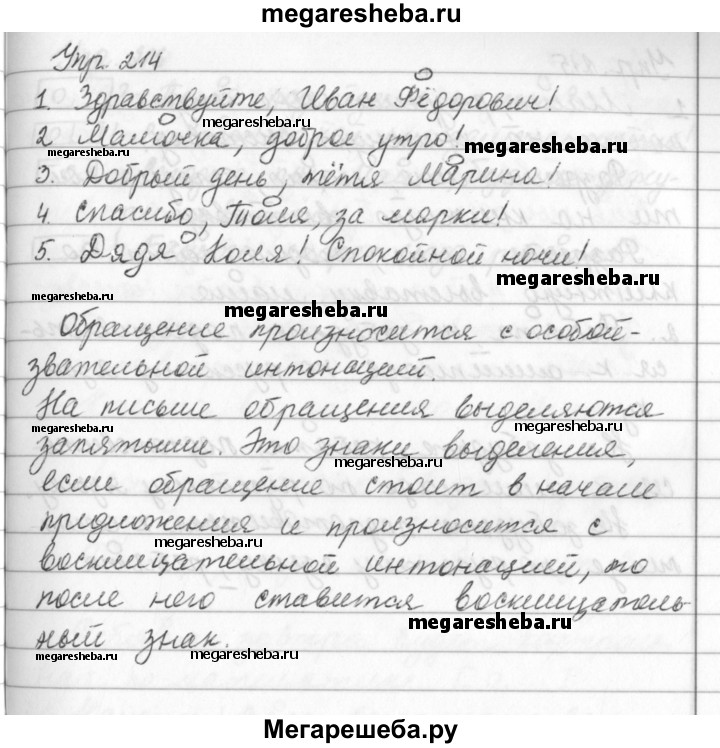 megaresheba.ru
Упр. 214
1. Здравствуйте, Иван Фёдорович!
megaresheba.ru
2 Мамочка, доброе утро!
megaresheba.ru
megaresheba.ru
3. Добрый день, тётя Марина!
4. Спасибо, Толя, за марки!
5. Дядя Коля! Спокойной ночи!
megaresheba.ru
megaresheba.ru
megaresheba.ru
Обращение произносится с особой-
звательной интонацией.
megaresheba.ru
На письме обращения выделяются
megaresheba.ru
megaresheba.ru
запятыми. Это знаки выделения,
megaresheba.ru
если обращение стоит в начале
предложения и произносится с
megaresheba.ru
восклицательной интонацией, то
после него ставится восклицатель-
megaresheba.ru
ный знак.
megaresheba.ru
megaresheba.ru
Мегарешеба.ру